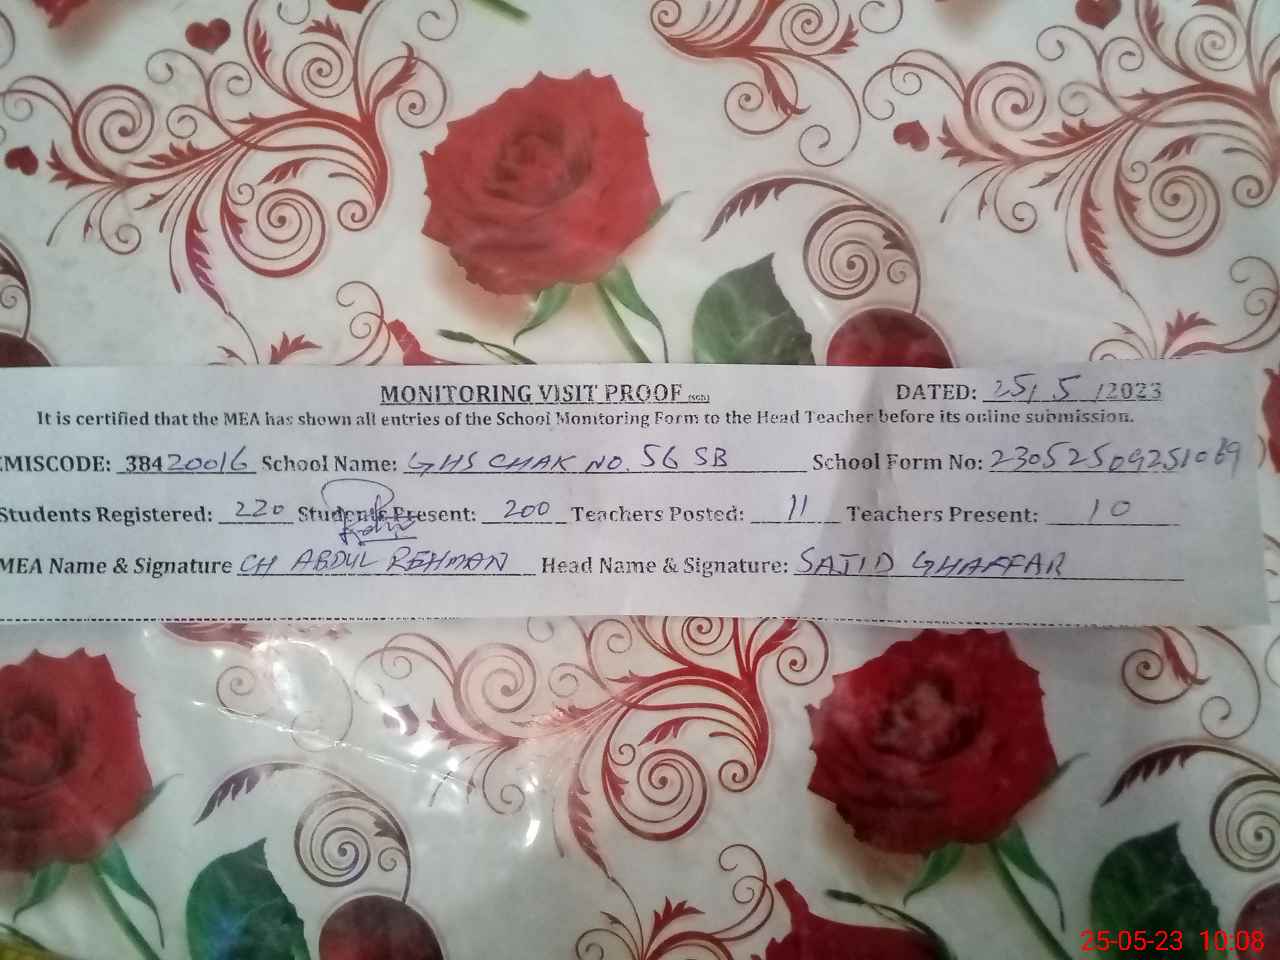 MONITORING VISIT PROOF DATED: 25/5/2023
It is certified that the MEA has shown all entries of the School Monitoring Form to the Head Teacher before its online submission.
EMISCODE: 38420016 School Name: GHS CHAK NO. 56 SB School Form No:
Students Registered: 220 Students Present: 200 Teachers Posted: 11 Teachers Present: 10
MEA Name & Signature CH ABDUL REHMAN Head Name & Signature: SAJID GHAFFAR
25-05-23 10:08